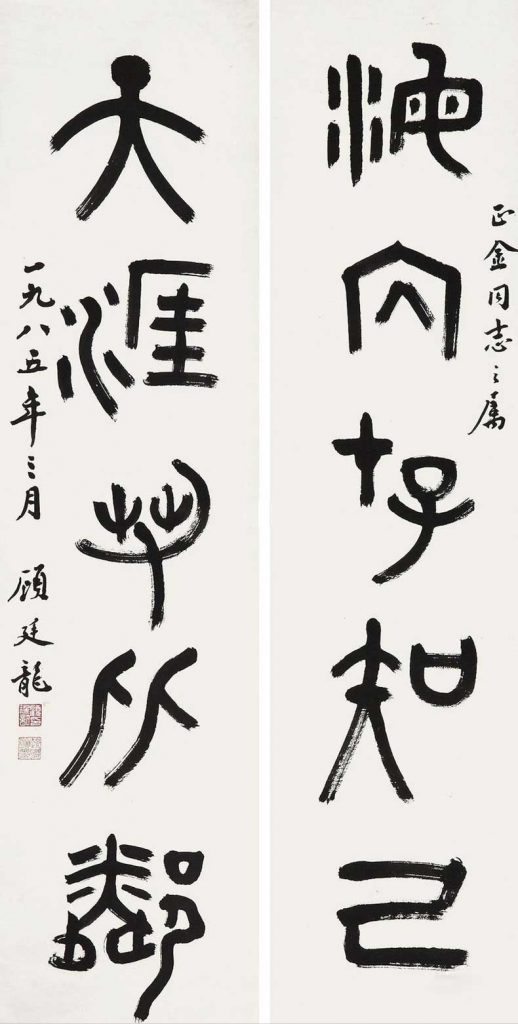 正金同志之属
海内存知己
天涯若比鄰
一九八五年三月 顧廷龍